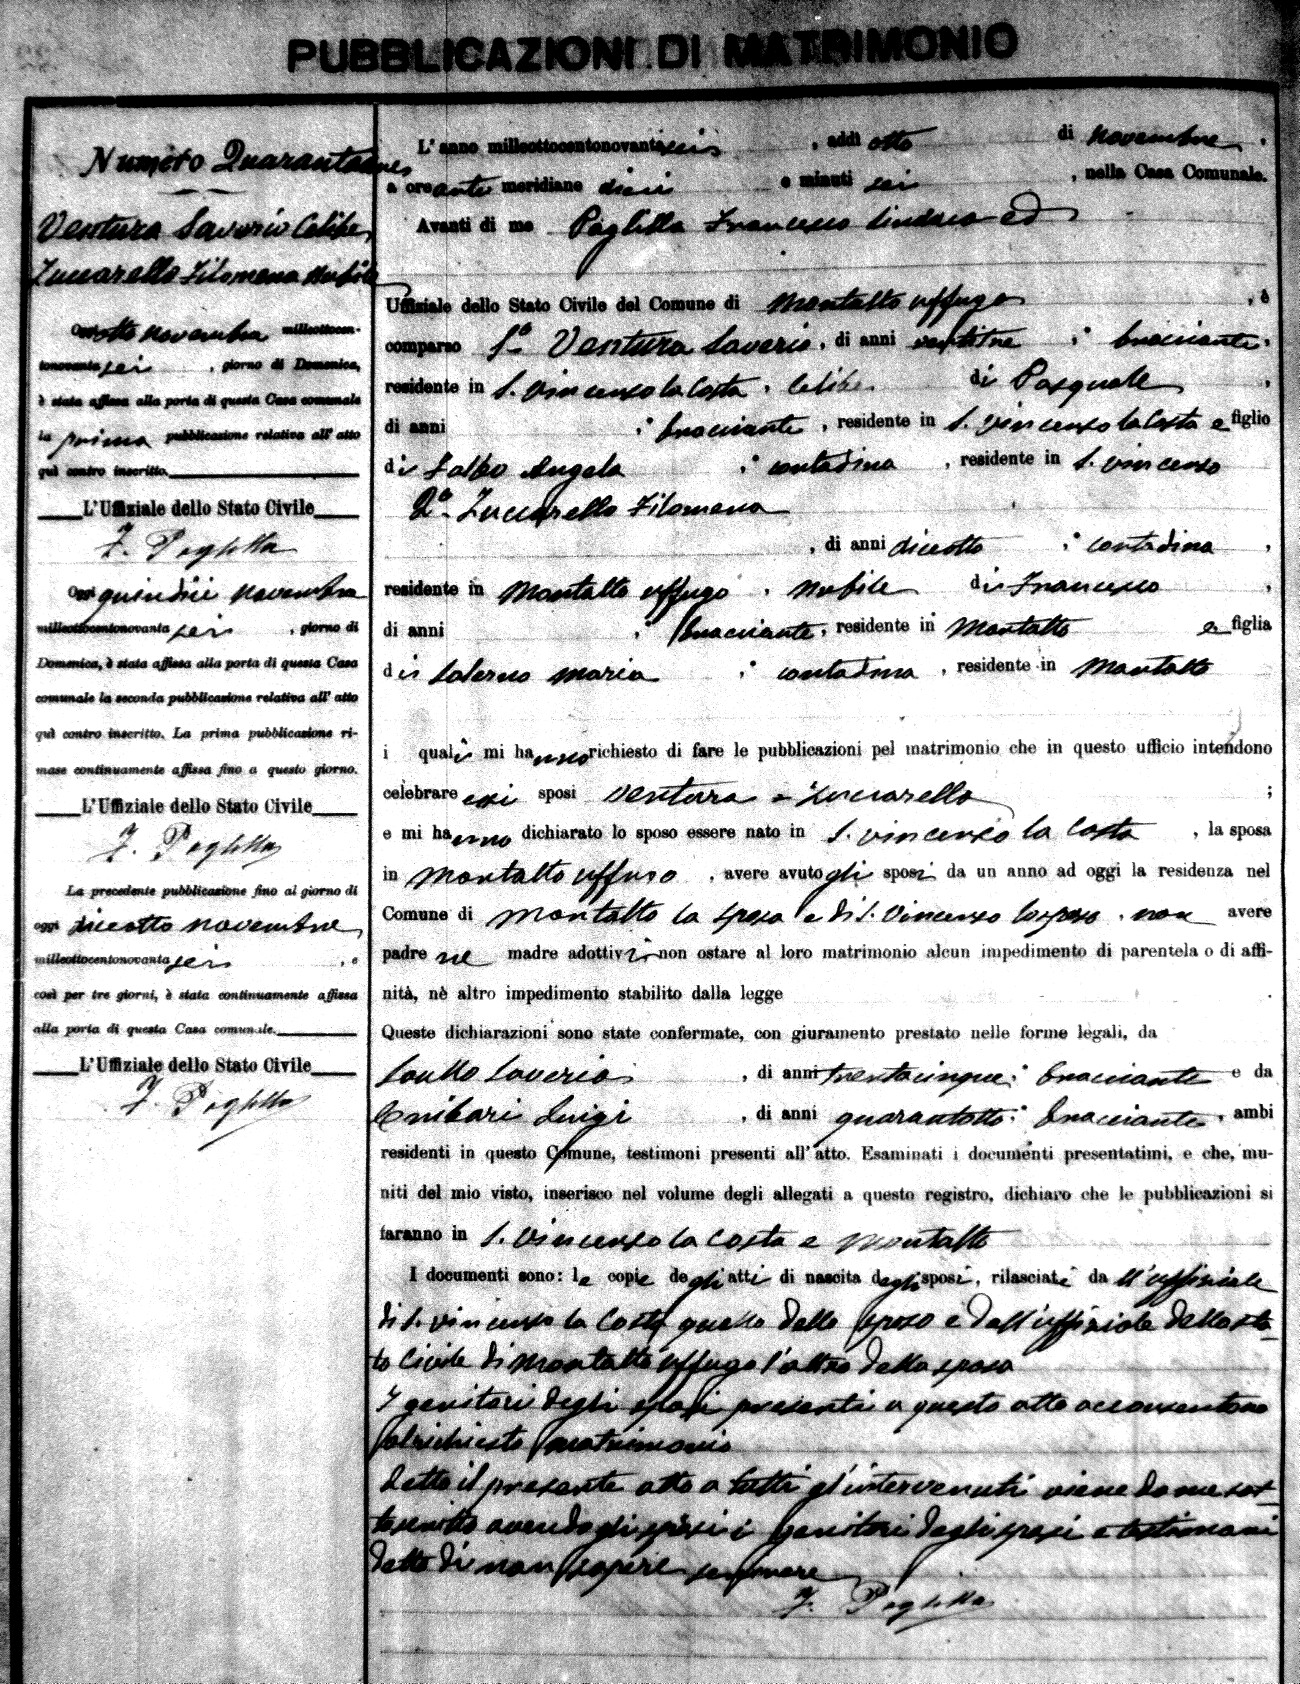 PUBBLICAZIONI DI MATRIMONIO
Numero Quarantatres
Ventura Saverio Celibe
Zuccarello Filomena Nubile
Oggi otto novembre milleottocen-
tonovantasei, giorno di Domenica,
è stata affissa alla porta di questa Casa comunale
la prima pubblicazione relativa all' atto
quì contro inscritto.
L'Uffiziale dello Stato Civile
F. Paglilla
Oggi quindici novembre
milleottocentonovantasei, giorno di
Domenica, è stata affissa alla porta di questa Casa
comunale la seconda pubblicazione relativa all' atto
quì contro inscritto. La prima pubblicazione ri-
mase continuamente affissa fino a questo giorno.
L'Uffiziale dello Stato Civile
F. Paglilla
La precedente pubblicazione fino al giorno di
oggi diciotto novembre
milleottocentonovantasei, e
così per tre giorni, è stata continuamente affissa
alla porta di questa Casa comunale.
L'Uffiziale dello Stato Civile
F. Paglilla
L' anno milleottocentonovantasei, addì otto di novembre,
a ore anti meridiane dieci e minuti sei, nella Casa Comunale.
Avanti di me Paglilla Francesco Sindaco ed
Uffiziale dello Stato Civile del Comune di Montalto uffugo, è
comparso 1° Ventura Saverio, di anni ventitre, bracciante,
residente in S. Vincenzo la Costa, Celibe di Pasquale,
di anni, bracciante, residente in S. Vincenzo la Costa e figlio
di Salbo Angela, contadina, residente in S. Vincenzo
2° Zuccarello Filomena
, di anni diciotto, contadina,
residente in Montalto uffugo, Nubile di Francesco,
di anni, bracciante, residente in Montalto e figlia
di Salerno Maria, contadina, residente in Montalto
i quali mi hanno richiesto di fare le pubblicazioni pel matrimonio che in questo ufficio intendono
celebrare essi sposi Ventura e Zuccarello;
e mi hanno dichiarato lo sposo essere nato in S. Vincenzo la Costa, la sposa
in Montalto uffugo, avere avuto gli sposi da un anno ad oggi la residenza nel
Comune di Montalto la sposa e di S. Vincenzo lo sposo, non avere
padre ne madre adottivi non ostare al loro matrimonio alcun impedimento di parentela o di affi-
nità, nè altro impedimento stabilito dalla legge
Queste dichiarazioni sono state confermate, con giuramento prestato nelle forme legali, da
Saullo Saverio, di anni trentacinque, bracciante e da
Luigi, di anni quarantotto, bracciante, ambi
residenti in questo Comune, testimoni presenti all' atto. Esaminati i documenti presentatimi, e che, mu-
niti del mio visto, inserisco nel volume degli allegati a questo registro, dichiaro che le pubblicazioni si
faranno in S. Vincenzo la Costa e Montalto
I documenti sono: le copie degli atti di nascita degli sposi, rilasciate da ll'uffiziale
di S. Vincenzo la Costa quello dello sposo e dall'uffiziale dello sta-
to Civile di Montalto uffugo l'altro della sposa
I genitori degli sposi presenti a questo atto acconsentono
al richiesto matrimonio
Letto il presente atto a tutti gl'intervenuti viene da me sot-
toscritto avendo gli sposi i genitori degli sposi e testimoni
detto di non sapere firmare
F. Paglilla